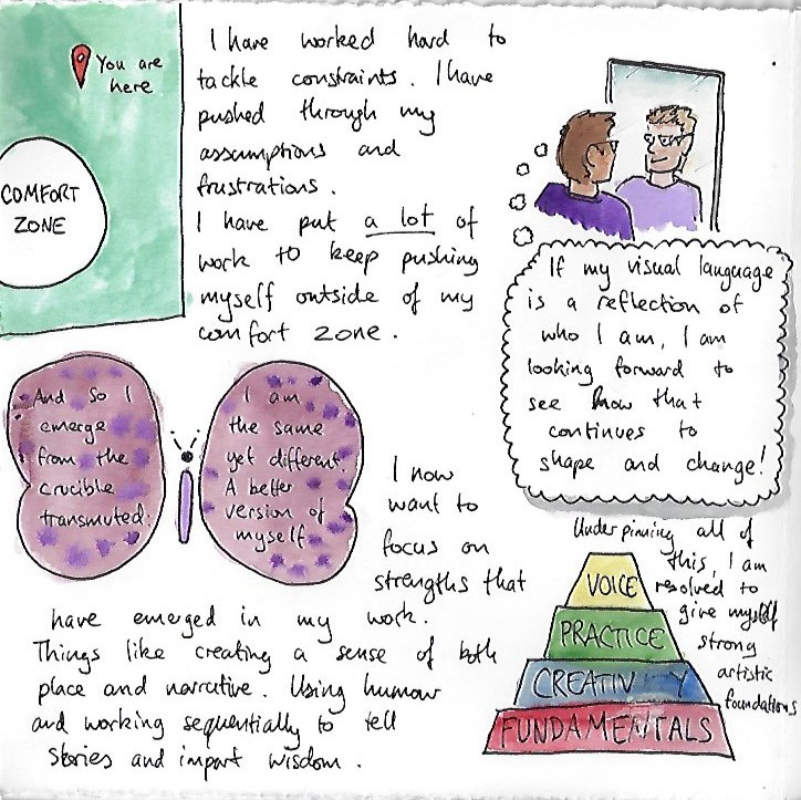 You are
here
COMFORT
ZONE
I have worked hard to
tackle constraints. I have
pushed through my
assumptions and
frustrations.
I have put a lot of
work to keep pushing
myself outside of my
comfort zone.
If my visual language
is a reflection of
who I am, I am
looking forward to
see how that
continues to
shape and change!
And so I
emerge
from the
crucible
transmuted.
I am
the same
yet different.
A better
version of
myself
I now
want to
focus on
strengths that
have emerged in my work.
Things like creating a sense of both
place and narrative. Using humour
and working sequentially to tell
stories and impart wisdom.
Underpinning all of
this, I am
resolved to
give myself
strong
artistic
foundations
VOICE
PRACTICE
CREATIVITY
FUNDAMENTALS